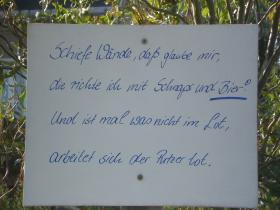 Schiefe Wände, daß glaube mir,
die richte ich mit Schnaps und Bier!
Und ist mal was nicht im Lot,
arbeitet sich der Putzer tot.